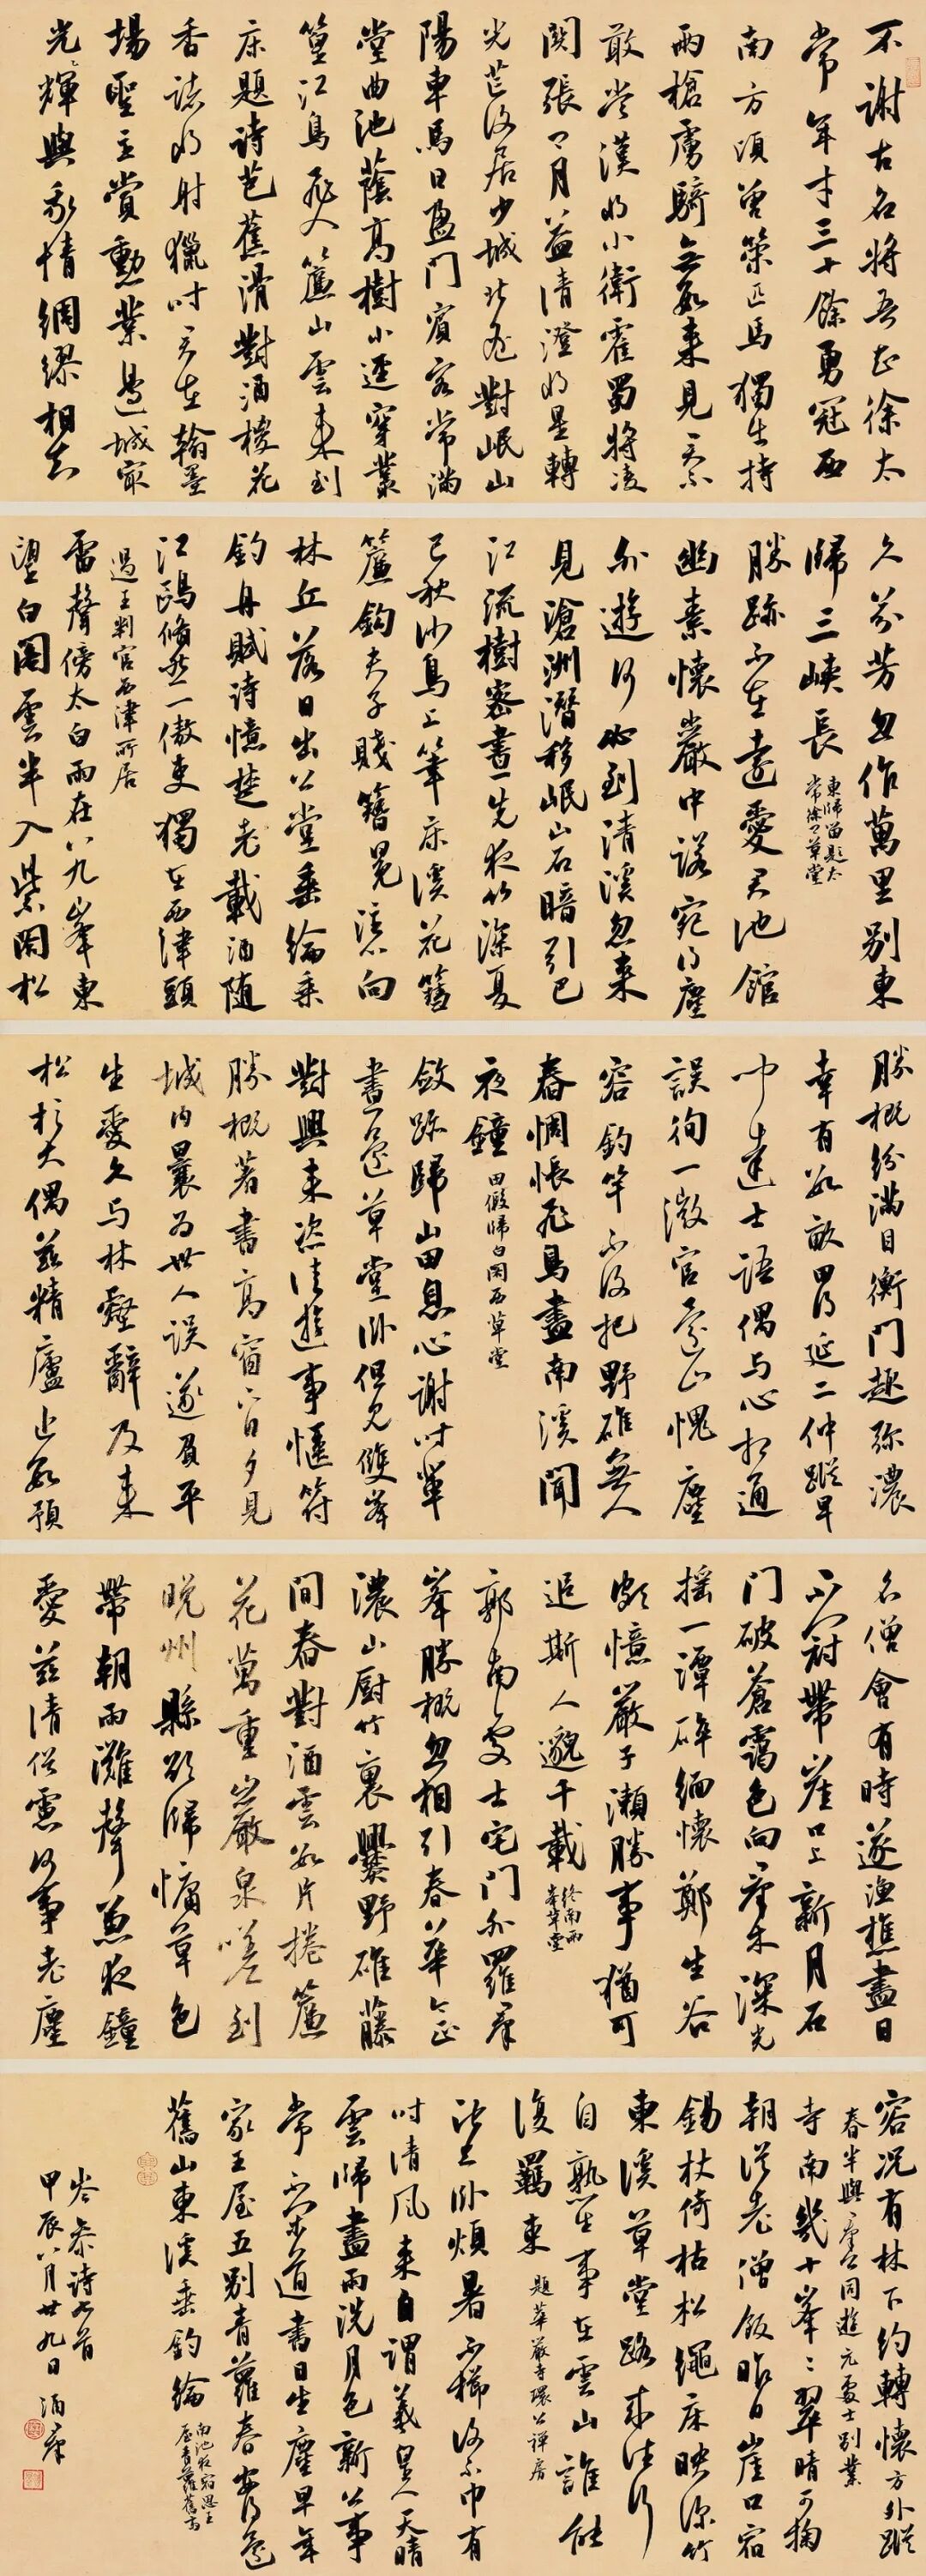 不謝古名將吾知徐太
常年才三十餘勇冠西
南方頃曾策匹馬獨出持
兩槍虜騎無數來見君不
敢當漢將小衛霍蜀將凌
關張卿月益清澄將星轉
光芒復居少城北遙對岷山
陽車馬日盈門賓客常滿
堂曲池蔭高樹小逕穿叢
篁江鳥飛入簾山雲來到
床題詩芭蕉滑對酒棕花
香諸將射獵時君在翰墨
場聖主賞勳業邊城最
光輝與我情綢繆相知
久芬芳忽作萬里別東
歸三峽長
東歸留題太
常徐卿草堂
勝跡不在遠愛君池館
幽素懷巖中諾宛得塵
外遊何必到清溪忽來
見滄洲潛移岷山石暗引巴
江流樹密晝先夜竹深夏
已秋沙鳥上筆床溪花籍
簾鉤夫子賤簪冕注向
林丘落日出公堂垂綸乘
釣舟賦詩憶楚老載酒隨
江鷗翛然一傲吏獨在西津頭
過王判官西津所居
雷聲傍太白雨在八九峯東
望白閣雲半入紫閣松
勝概紛滿目衡門趣彌濃
幸有數畝田得延二仲蹤早
聞達士語偶與心相通
誤徇一微官還山愧塵
容釣竿不復把野碓無人
舂惆悵飛鳥盡南溪聞
夜鐘
田假歸白閣西草堂
斂跡歸山田息心謝時輩
晝還草堂臥但見雙峯
對興來恣佳遊事愜符
勝概著書高窗下日夕見
城內曩為世人誤遂負平
生愛久與林壑辭及來
松杉大偶茲精廬近數預
名僧會有時逐漁樵盡日
不冠帶崖口上新月石
門破蒼靄色向羣木深光
搖一潭碎緬懷鄭生谷
頗憶嚴子瀨勝事猶可
追斯人邈千載
終南兩
峯草堂
郭南處士宅門外羅羣
峯勝概忽相引春華今正
濃山廚竹裏爨野碓藤
間舂對酒雲數片捲簾
花萬重巖泉嗟到
晚州縣欲歸慵草色
帶朝雨灘聲兼夜鐘
愛茲清俗慮何事老塵
容況有林下約轉懷方外蹤
春半與羣公同遊元處士別業
寺南幾十峯峯翠晴可掬
朝從老僧飯昨日崖口宿
錫杖倚枯松繩床映深竹
東溪草堂路來往行
自熟生事在雲山誰能
復羈束
題華嚴寺環公禪房
池上臥煩暑不櫛復不巾有
時清風來自謂羲皇人天晴
雲歸盡雨洗月色新公事
常不閑道書日生塵早年
家王屋五別青蘿春安得還
舊山東溪垂釣綸
南池夜宿思王
屋青蘿舊齋
岑參詩七首
甲辰八月廿九日